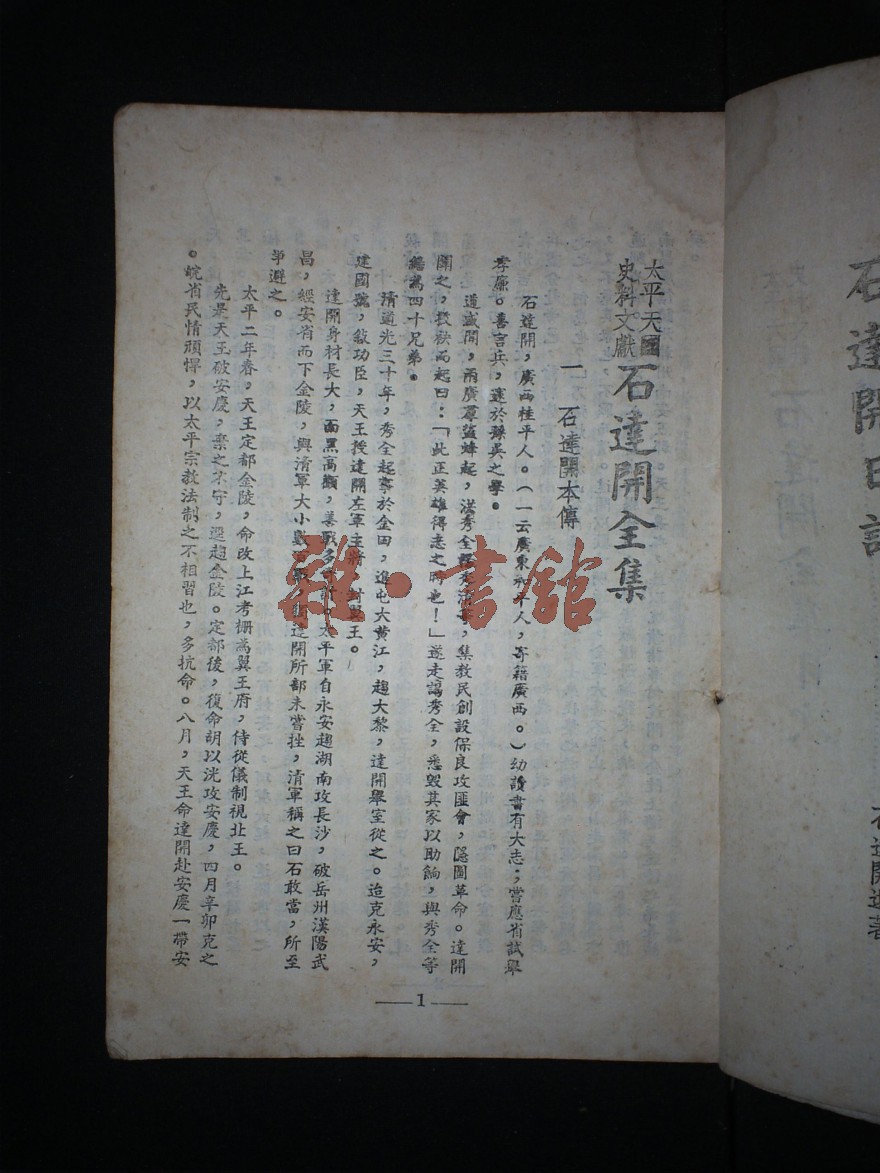 太平天國
史料文獻
石達開全集
一 石達開本傳
石達開,廣西桂平人。(一云廣東 人,寄籍廣西。)幼讀書有大志;嘗應省試舉
孝廉。善言兵,邃於孫吳之學。
道咸間,兩廣羣盜蜂起,洪秀全 ,集教民創設保良攻匪會,隱圖革命。達開
聞之,投袂而起曰:「此正英雄得志之時也!」遂走謁秀全,悉毀其家以助餉,與秀全等
結為四十兄弟。
清道光三十年,秀全起事於金田,進屯大黃江,趨大黎,達開舉室從之。迨克永安,
建國號,敍功臣,天王授達開左軍主將,封翼王。
達開身材長大,面黑高顴,善戰多 。太平軍自永安趨湖南攻長沙,破岳州漢陽武
昌,經安省而下金陵,與清軍大小數 達開所部未嘗挫,清軍稱之曰石敢當,所至
爭避之。
太平二年春,天王定都金陵,命改上江考棚為翼王府,侍從儀制視北王。
先是天王破安慶,棄之不守,逕趨金陵。定都後,復命胡以洸攻安慶,四月辛卯克之
。皖省民情頑悍,以太平宗教法制之不相習也,多抗命。八月,天王命達開赴安慶一帶安
——1——
雜·書館
石達開日記
石達開遺著